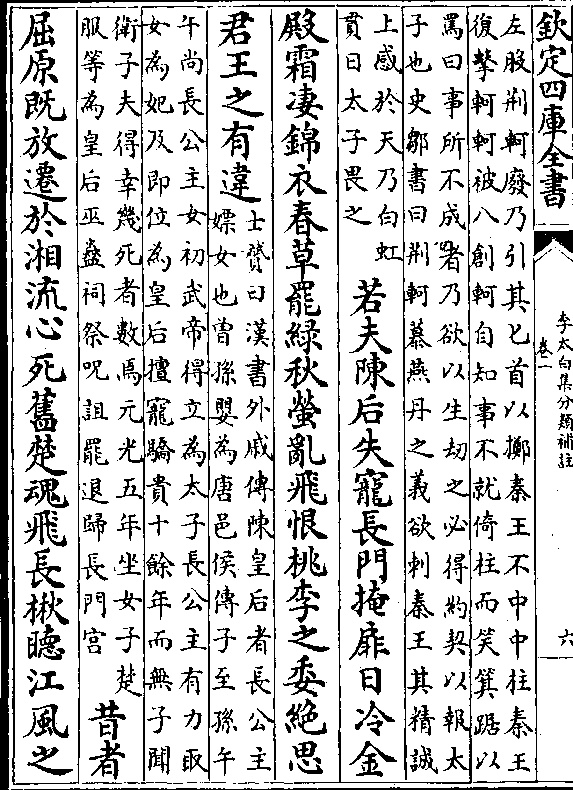 欽定四庫全書
李太白集分類補註
卷一
六
左股荆軻廢乃引其匕首以擲秦王不中中柱秦王
復擊軻軻被八創軻自知事不就倚柱而笑箕踞以
罵曰事所不成者乃欲以生刼之必得約契以報太
子也史鄒書曰荆軻慕燕丹之義欲刺秦王其精誠
上感於天乃白虹
貫日太子畏之
若夫陳后失寵長門掩扉日冷金
殿霜凄錦衣春草罷緑秋螢亂飛恨桃李之委絶思
君王之有違
士贇曰漢書外戚傳陳皇后者長公主
嫖女也曾孫嬰為唐邑侯傳子至孫午
午尚長公主女初武帝得立為太子長公主有力取
女為妃及即位為皇后擅寵驕貴十餘年而無子聞
衛子夫得幸幾死者數焉元光五年坐女子楚
服等為皇后巫蠱祠祭呪詛罷退歸長門宫
昔者
屈原既放遷於湘流心死舊楚魂飛長楸聽江風之